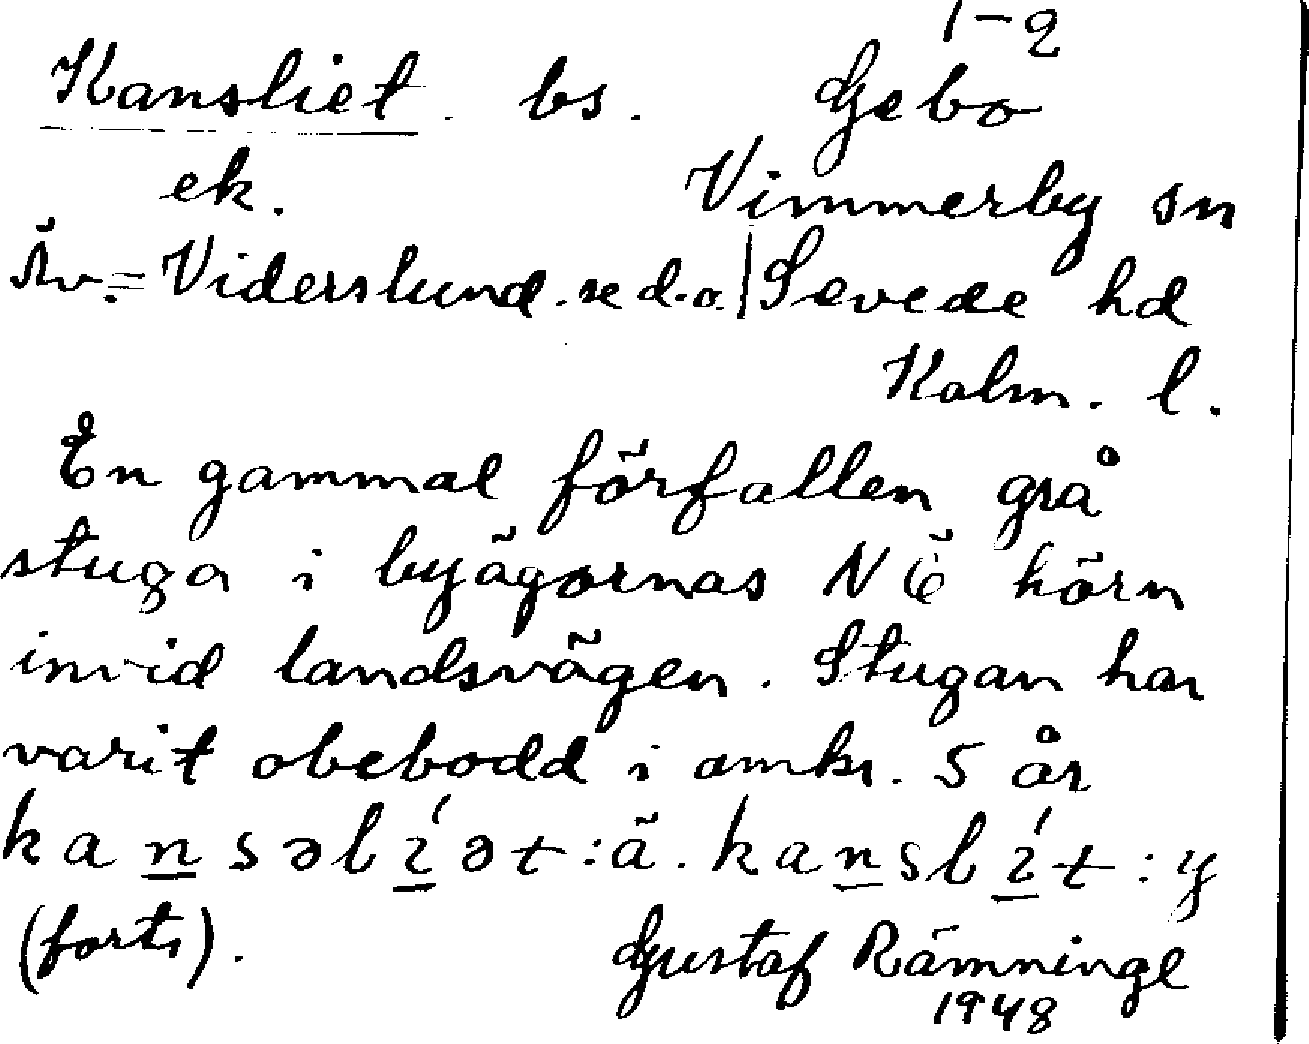 1-2
Kansliet. bs. Gebo
ek. Vimmerby sn
Äv.= Viderslund. se d.o. | Sevede hd
Kalm. l.
En gammal förfallen grå
stuga i byägornas NÖ hörn
invid landsvägen. Stugan har
varit obebodd i omkr. 5 år
kansəlíət:ä. kanslít:y
(forts). Gustaf Rämninge
1948